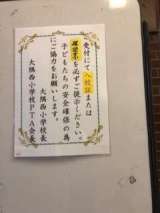 ご受付にて入校証または
確認票を必ずご提示ください。
子どもたちの安全確保の為
にご協力をお願いします。
大隅西小学校長
大隅西小学校PTA会長